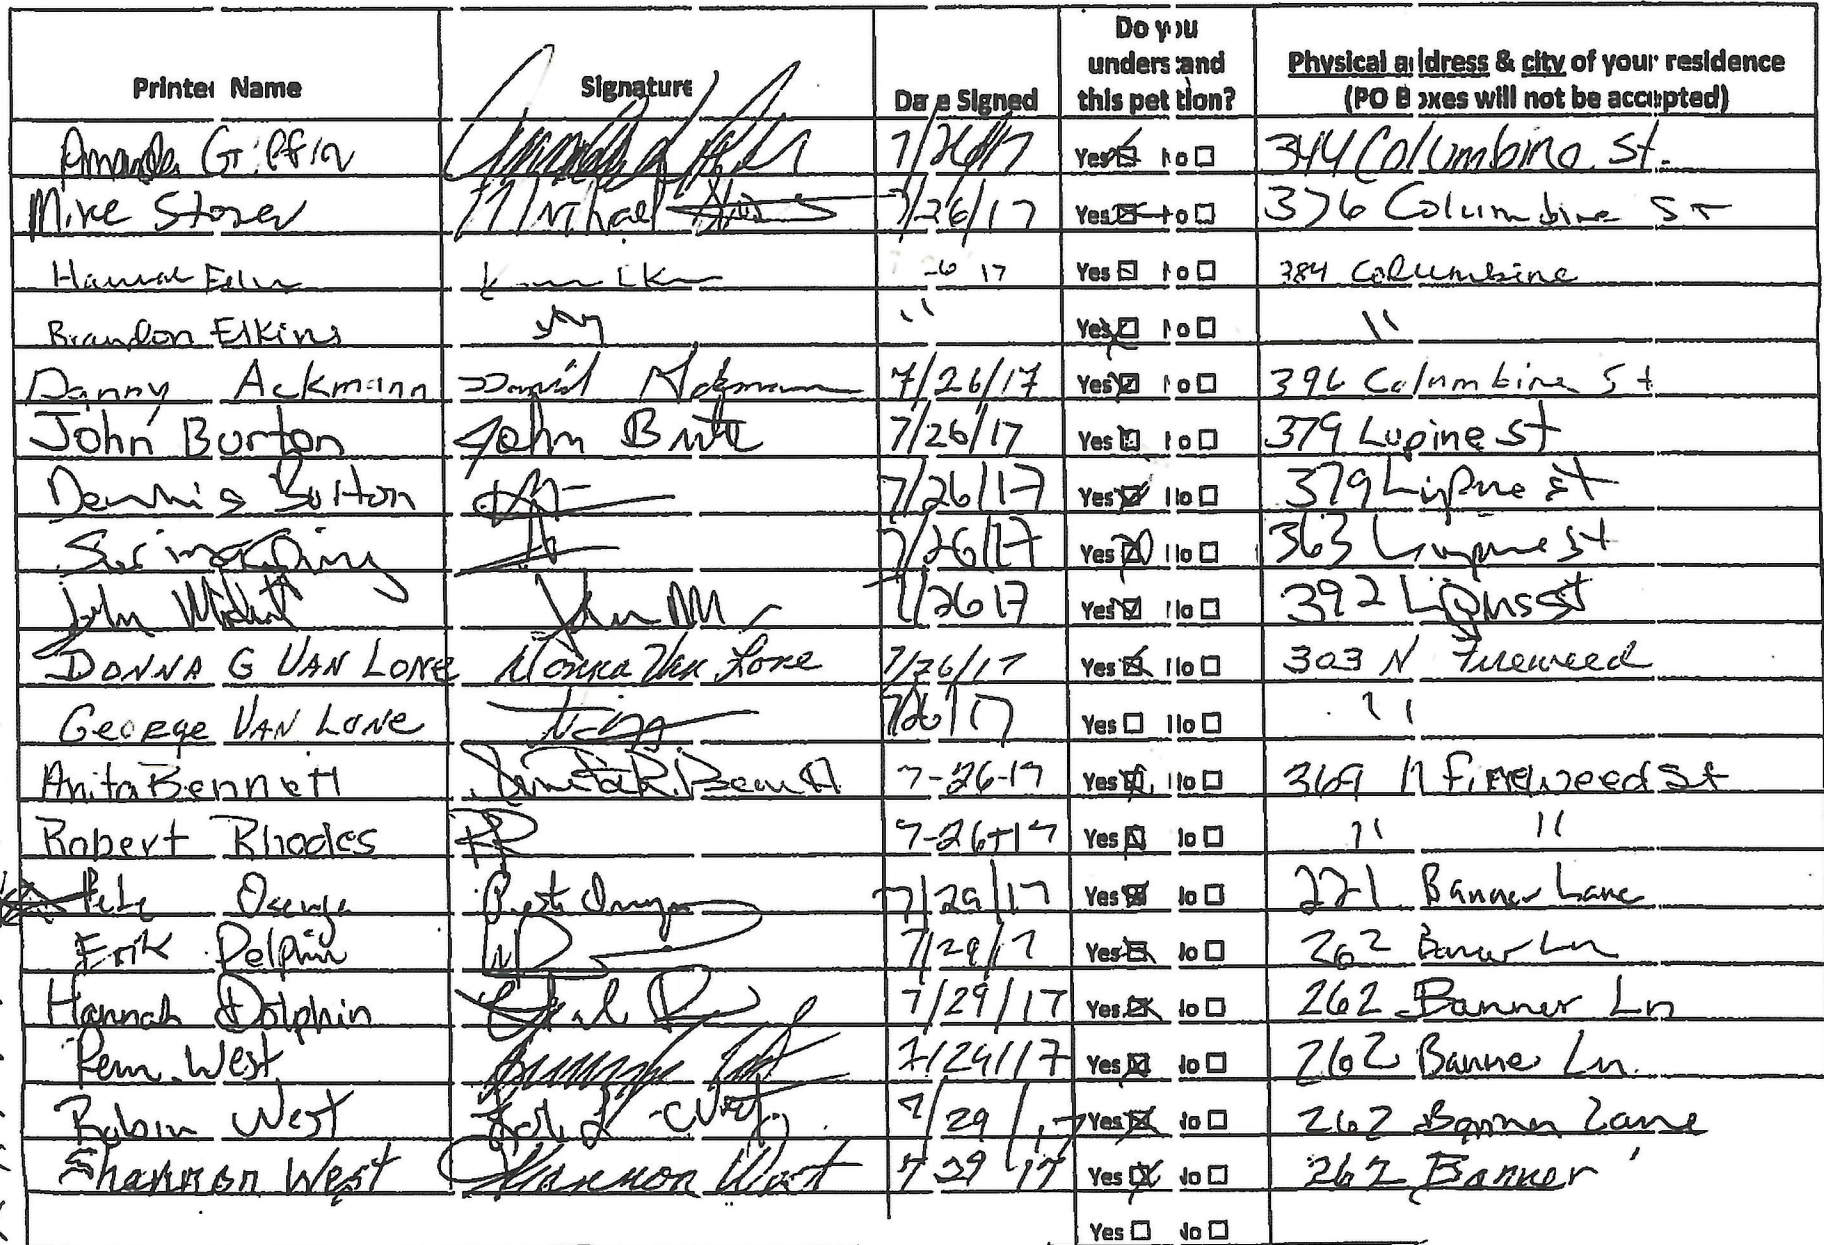 Printed Name Signature Date Signed Do you understand this petition? Physical address & city of your residence (PO Boxes will not be accepted)
Amanda Griffin 7/26/17 Yes No 344 Columbine St.
Mike Stover Michael 7/26/17 Yes No 376 Columbine St
Hannah 17 Yes No 384 Columbine
Brandon Elkins " Yes No "
Danny Ackmann David Ackmann 7/26/17 Yes No 396 Columbine St
John Burton John 7/26/17 Yes No 379 Lupine St
Dennis Burton 7/26/17 Yes No 379 Lupine St
7/26/17 Yes No 363 Lupine St
John 7/26 17 Yes No 392 St
DONNA G VAN LONE Donna Van Lone 7/26/17 Yes No 303 N Fireweed
GEORGE VAN LONE 7/26/17 Yes No "
Anita Bennett Anita R. Bennett 7-26-17 Yes No 369 N Fireweed St
Robert Rhodes RR 7-26-17 Yes No " "
Pete 7/29/17 Yes No 221 Banner Lane
Erik Dolphin 7/29/17 Yes No 262 Banner Ln
Hannah Dolphin 7/29/17 Yes No 262 Banner Ln
West 7/29/17 Yes No 262 Banner Ln.
Robin West 7/29/17 Yes No 262 Banner Lane
Shannon West Shannon West 7 29 17 Yes No 262 Banner
Yes No